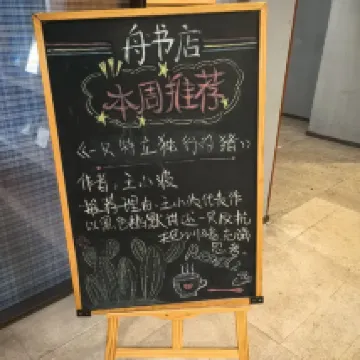 舟书店
本周推荐
《一只特立独行的猪》
作者:王小波
推荐理由:王小波代表作
以黑色幽默讲述一只反抗
充满
思考。